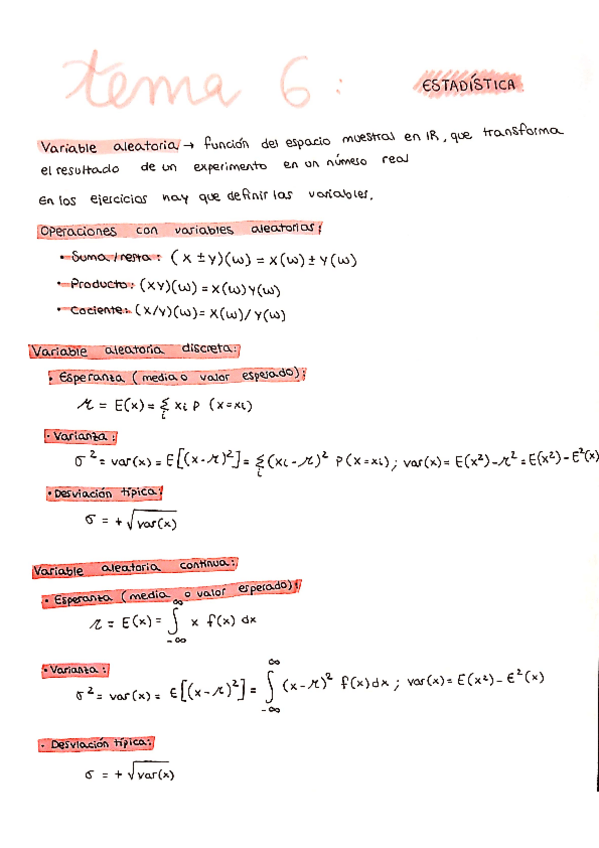 tema 6:
ESTADÍSTICA
Variable aleatoria → función del espacio muestral en ℝ, que transforma
el resultado de un experimento en un número real
En los ejercicios hay que definir las variables.
Operaciones con variables aleatorias:
• Suma/resta: (X ± Y)(ω) = X(ω) ± Y(ω)
• Producto: (XY)(ω) = X(ω)Y(ω)
• Cociente: (X/Y)(ω) = X(ω)/Y(ω)
Variable aleatoria discreta:
• Esperanza (media o valor esperado):
μ = E(x) = Σᵢ xᵢ P (x=xᵢ)
• Varianza:
σ² = var(x) = E[(x-μ)²] = Σᵢ (xᵢ-μ)² P(x=xᵢ); var(x) = E(x²)-μ² = E(x²)-E²(x)
• Desviación típica:
σ = +√var(x)
Variable aleatoria continua:
• Esperanza (media o valor esperado):
μ = E(x) = ∫_{-∞}^{∞} x f(x) dx
• Varianza:
σ² = var(x) = E[(x-μ)²] = ∫_{-∞}^{∞} (x-μ)² f(x)dx; var(x) = E(x²)-E²(x)
• Desviación típica:
σ = +√var(x)